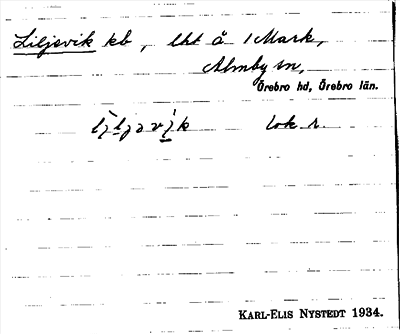 Liljevik kb, lht å 1 Mark,
Almby sn,
Örebro hd, Örebro län.
lok r.
KARL-ELIS NYSTEDT 1934.